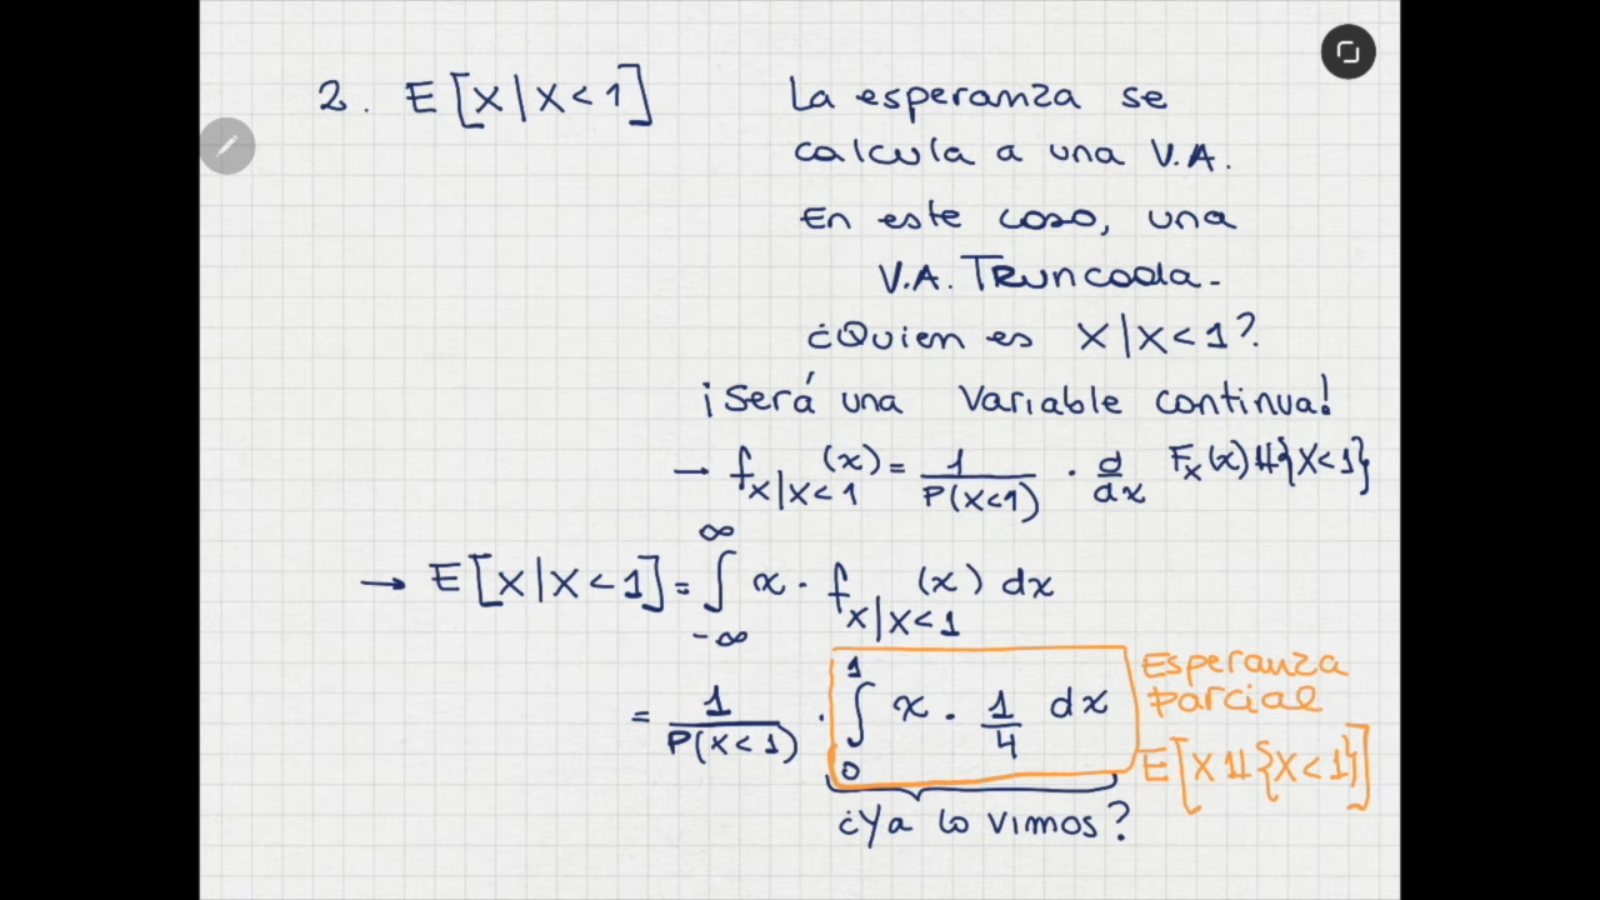 2. E[X|X<1]
La esperanza se
calcula a una V.A.
En este caso, una
V.A. Truncada.
¿Quien es X|X<1?
¡Será una Variable continua!
→ f_{X|X<1}(x) = 1/P(X<1) · d/dx F_X(x) 𝟙{X<1}
→ E[X|X<1] = ∫_{-∞}^{∞} x · f_{X|X<1}(x) dx
= 1/P(X<1) · ∫_0^1 x · 1/4 dx
Esperanza
parcial
E[X 𝟙{X<1}]
¿Ya lo vimos?